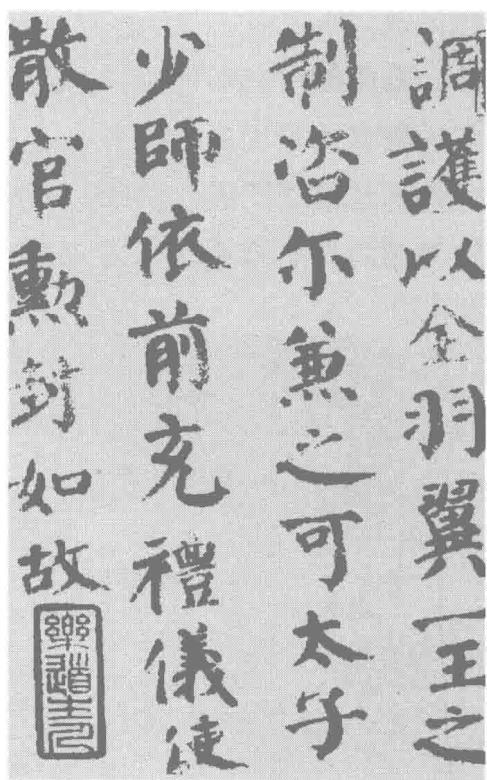 調護以全羽翼一王之
制咨尓兼之可太子
少師依前充禮儀使
散官勳封如故
樂道主人